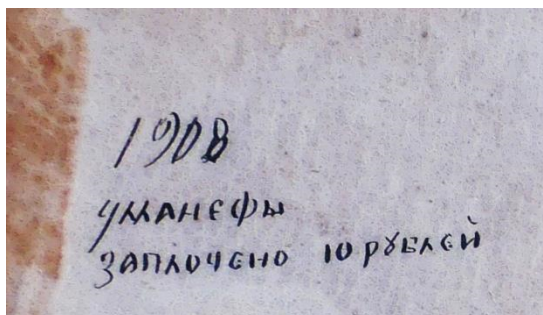 1908
УМАНЕФЫ
ЗАПЛОЧЕНО 10 РУБЛЕЙ